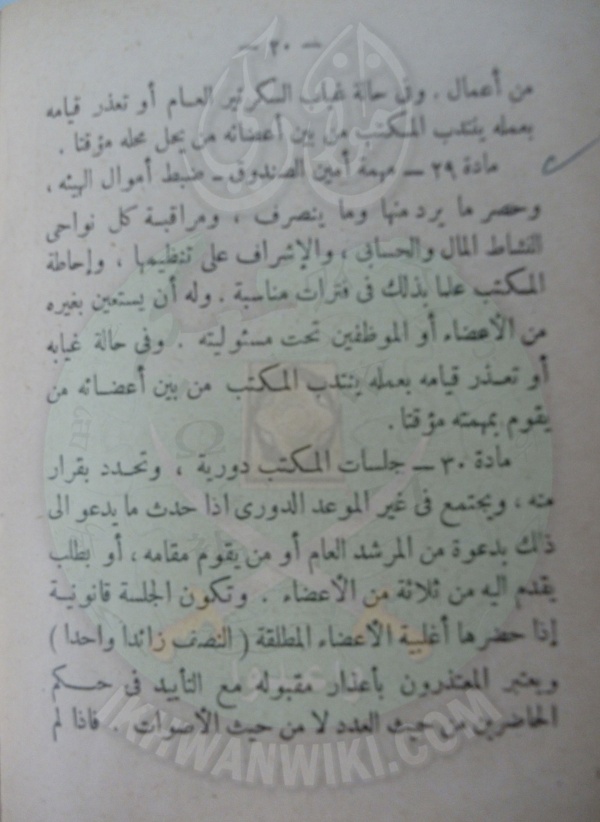 — ٢٠ —
من أعمال . وفى حالة غياب السكرتير العام أو تعذر قيامه
بعمله ينتدب المكتب من بين أعضائه من يحل محله مؤقتا .
مادة ٢٩ — مهمة أمين الصندوق ـ ضبط أموال الهيئه ،
وحصر ما يرد منها وما ينصرف ، ومراقبة كل نواحى
النشاط المالى والحسابى ، والإشراف على تنظيمها ، وإحاطة
المكتب علما بذلك فى فترات مناسبة . وله أن يستعين بغيره
من الأعضاء أو الموظفين تحت مسئوليته . وفى حالة غيابه
أو تعذر قيامه بعمله ينتدب المكتب من بين أعضائه من
يقوم بمهمته مؤقتا .
مادة ٣٠ — جلسات المكتب دورية ، وتحدد بقرار
منه ، ويجتمع فى غير الموعد الدورى اذا حدث ما يدعو الى
ذلك بدعوة من المرشد العام أو من يقوم مقامه ، أو بطلب
يقدم اليه من ثلاثة من الأعضاء . وتكون الجلسة قانونية
إذا حضرها أغلبية الأعضاء المطلقة ( النصف زائدا واحدا )
ويعتبر المعتذرون بأعذار مقبوله مع التأييد فى حكم
الحاضرين من حيث العدد لا من حيث الأصوات . فاذا لم
IKHWANWIKI.COM